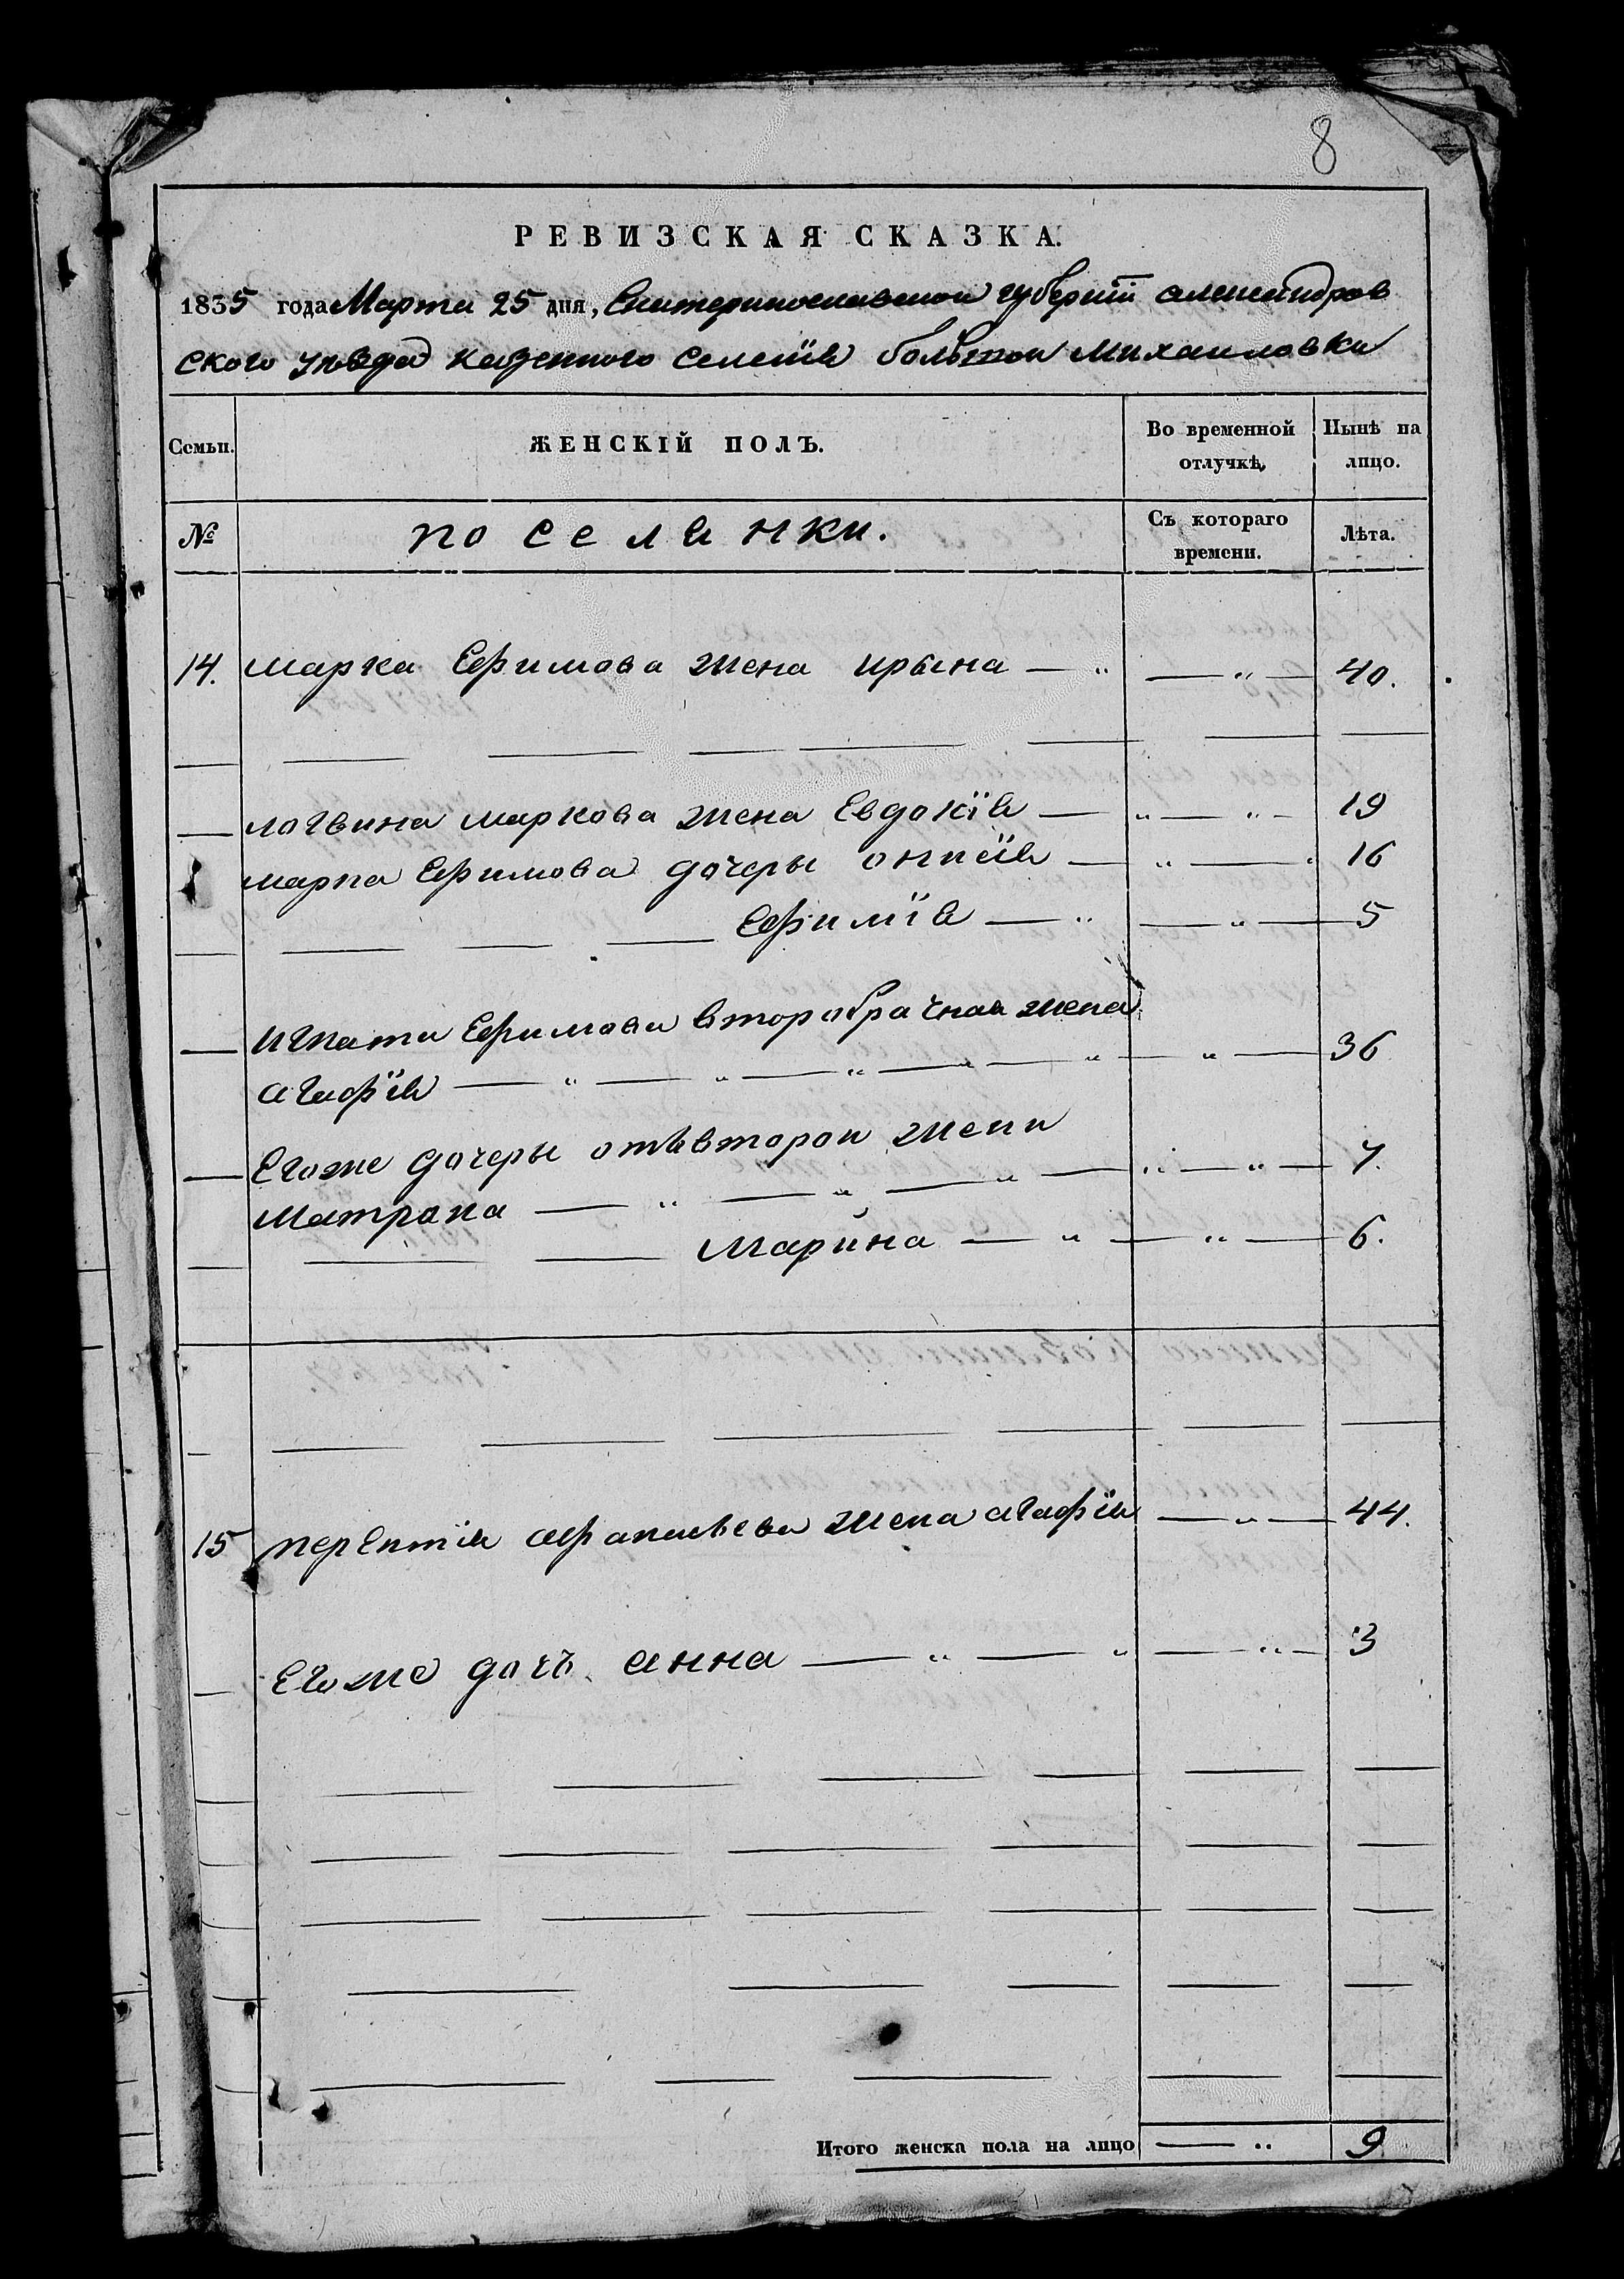 8
РЕВИЗСКАЯ СКАЗКА.
1835 года Марта 25 дня, Екатеринославской губернїи александров
ского уѣзда казенного селенїя большой михаиловки
Семьи. ЖЕНСКІЙ ПОЛЪ. Во временной отлучкѣ, Нынѣ на лицо.
№ поселянки. Съ котораго времени. Лѣта.
14. марка Ефимова жена ирына — " — " — 40.
— логвина маркова жена Евдокїя — " — " — 19
марка Ефимова дочеры — " — 16
Ефимїя — " — " — 5
— игната Ефимова второбрачная жена
агафїя — " — " — " — " — " — " — 36
— Егоже дочеры отъвторои жени
Матрона — " — " — " — " — " — 7.
Марина — " — " — 6.
15 терентїя афанасьева жена агафїя — " — 44.
— Егоже дочь анна — " — " — " — 3
Итого женска пола на лицо — " 9.